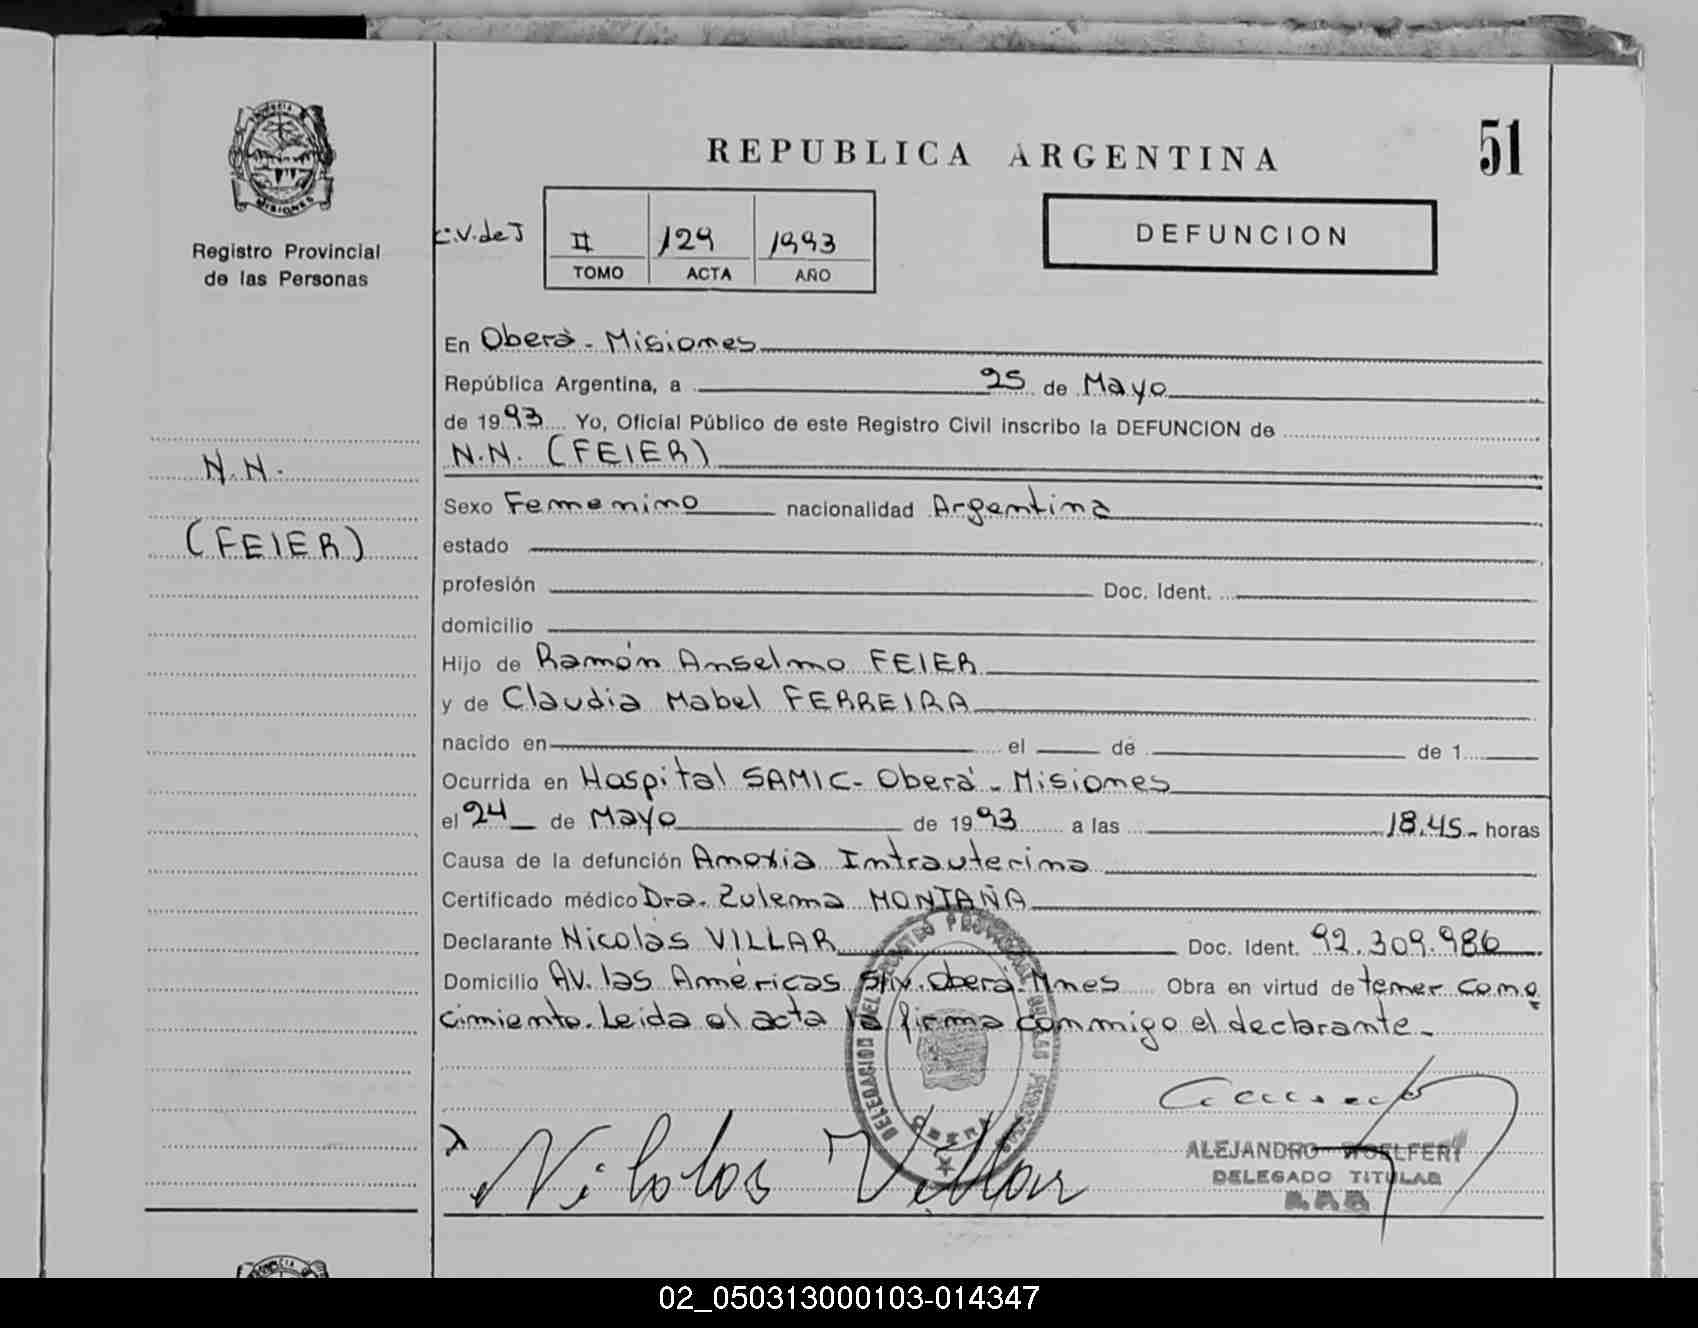 REPUBLICA ARGENTINA
51
PROVINCIA
MISIONES
Registro Provincial
de las Personas
C.V.de J
II 129 1993
TOMO ACTA AÑO
DEFUNCION
N.N.
(FEIER)
En Oberá - Misiones
República Argentina, a 25 de Mayo
de 1993 Yo, Oficial Público de este Registro Civil inscribo la DEFUNCION de
N.N. (FEIER)
Sexo Femenino nacionalidad Argentina
estado
profesión Doc. Ident.
domicilio
Hijo de Ramón Anselmo FEIER
y de Claudia Mabel FERREIRA
nacido en el de de 1
Ocurrida en Hospital SAMIC - Oberá - Misiones
el 24 de Mayo de 1993 a las 18.45 horas
Causa de la defunción Anoxia Intrauterina
Certificado médico Dra. Zulema MONTAÑA
Declarante Nicolás VILLAR Doc. Ident. 92.309.986
Domicilio AV. las Américas S/N. Oberá. Mnes Obra en virtud de tener cono
cimiento. Leida el acta la firma conmigo el declarante.
DELEGACION DEL REGISTRO PROVINCIAL DE LAS PERSONAS
OBERA
Nicolas Villar
ALEJANDRO WOELFERT
DELEGADO TITULAR
02_050313000103-014347